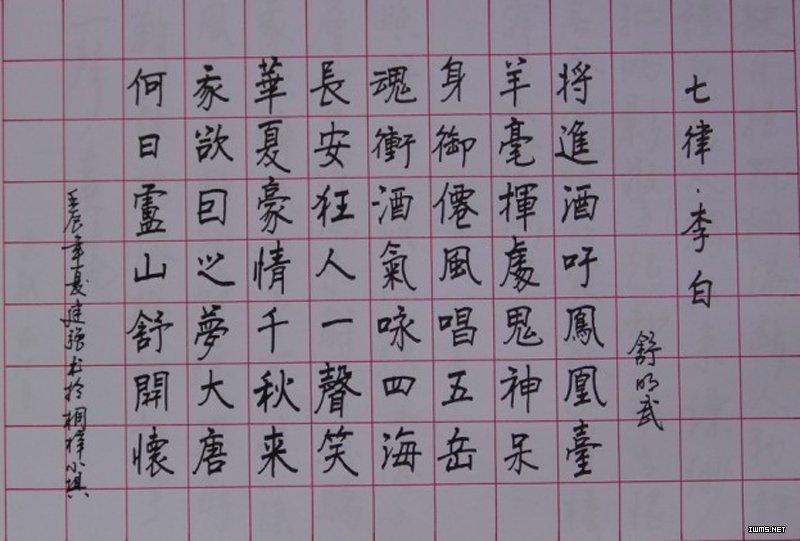 七律·李白
舒明武
将進酒吁鳳凰臺
羊毫揮處鬼神呆
身御僊風唱五岳
魂衝酒氣咏四海
長安狂人一聲笑
華夏豪情千秋来
衣欲回之夢大唐
何日廬山舒開懷
壬辰年夏建强书於桐梓小填
IWMS.NET